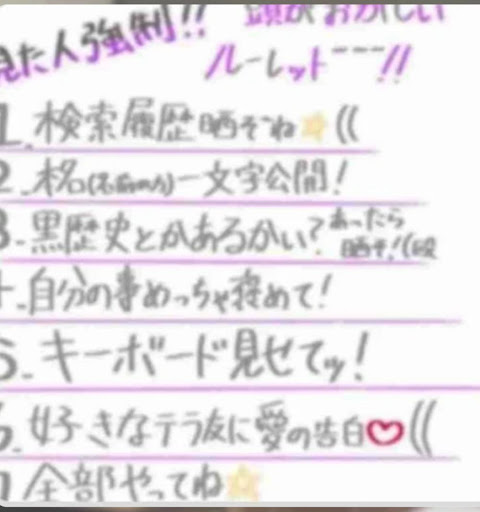 見た人強制!! 頭がおかしい
ルーレットーーー!!
1. 検索履歴晒そね☆((
2. 本名(名前のみ)一文字公開!
3. 黒歴史とかあるかい?あったら
晒そ!(殴
4. 自分の事めっちゃ褒めて!
5. キーボード見せてッ!
6. 好きなテラ友に愛の告白♡((
7 全部やってね☆